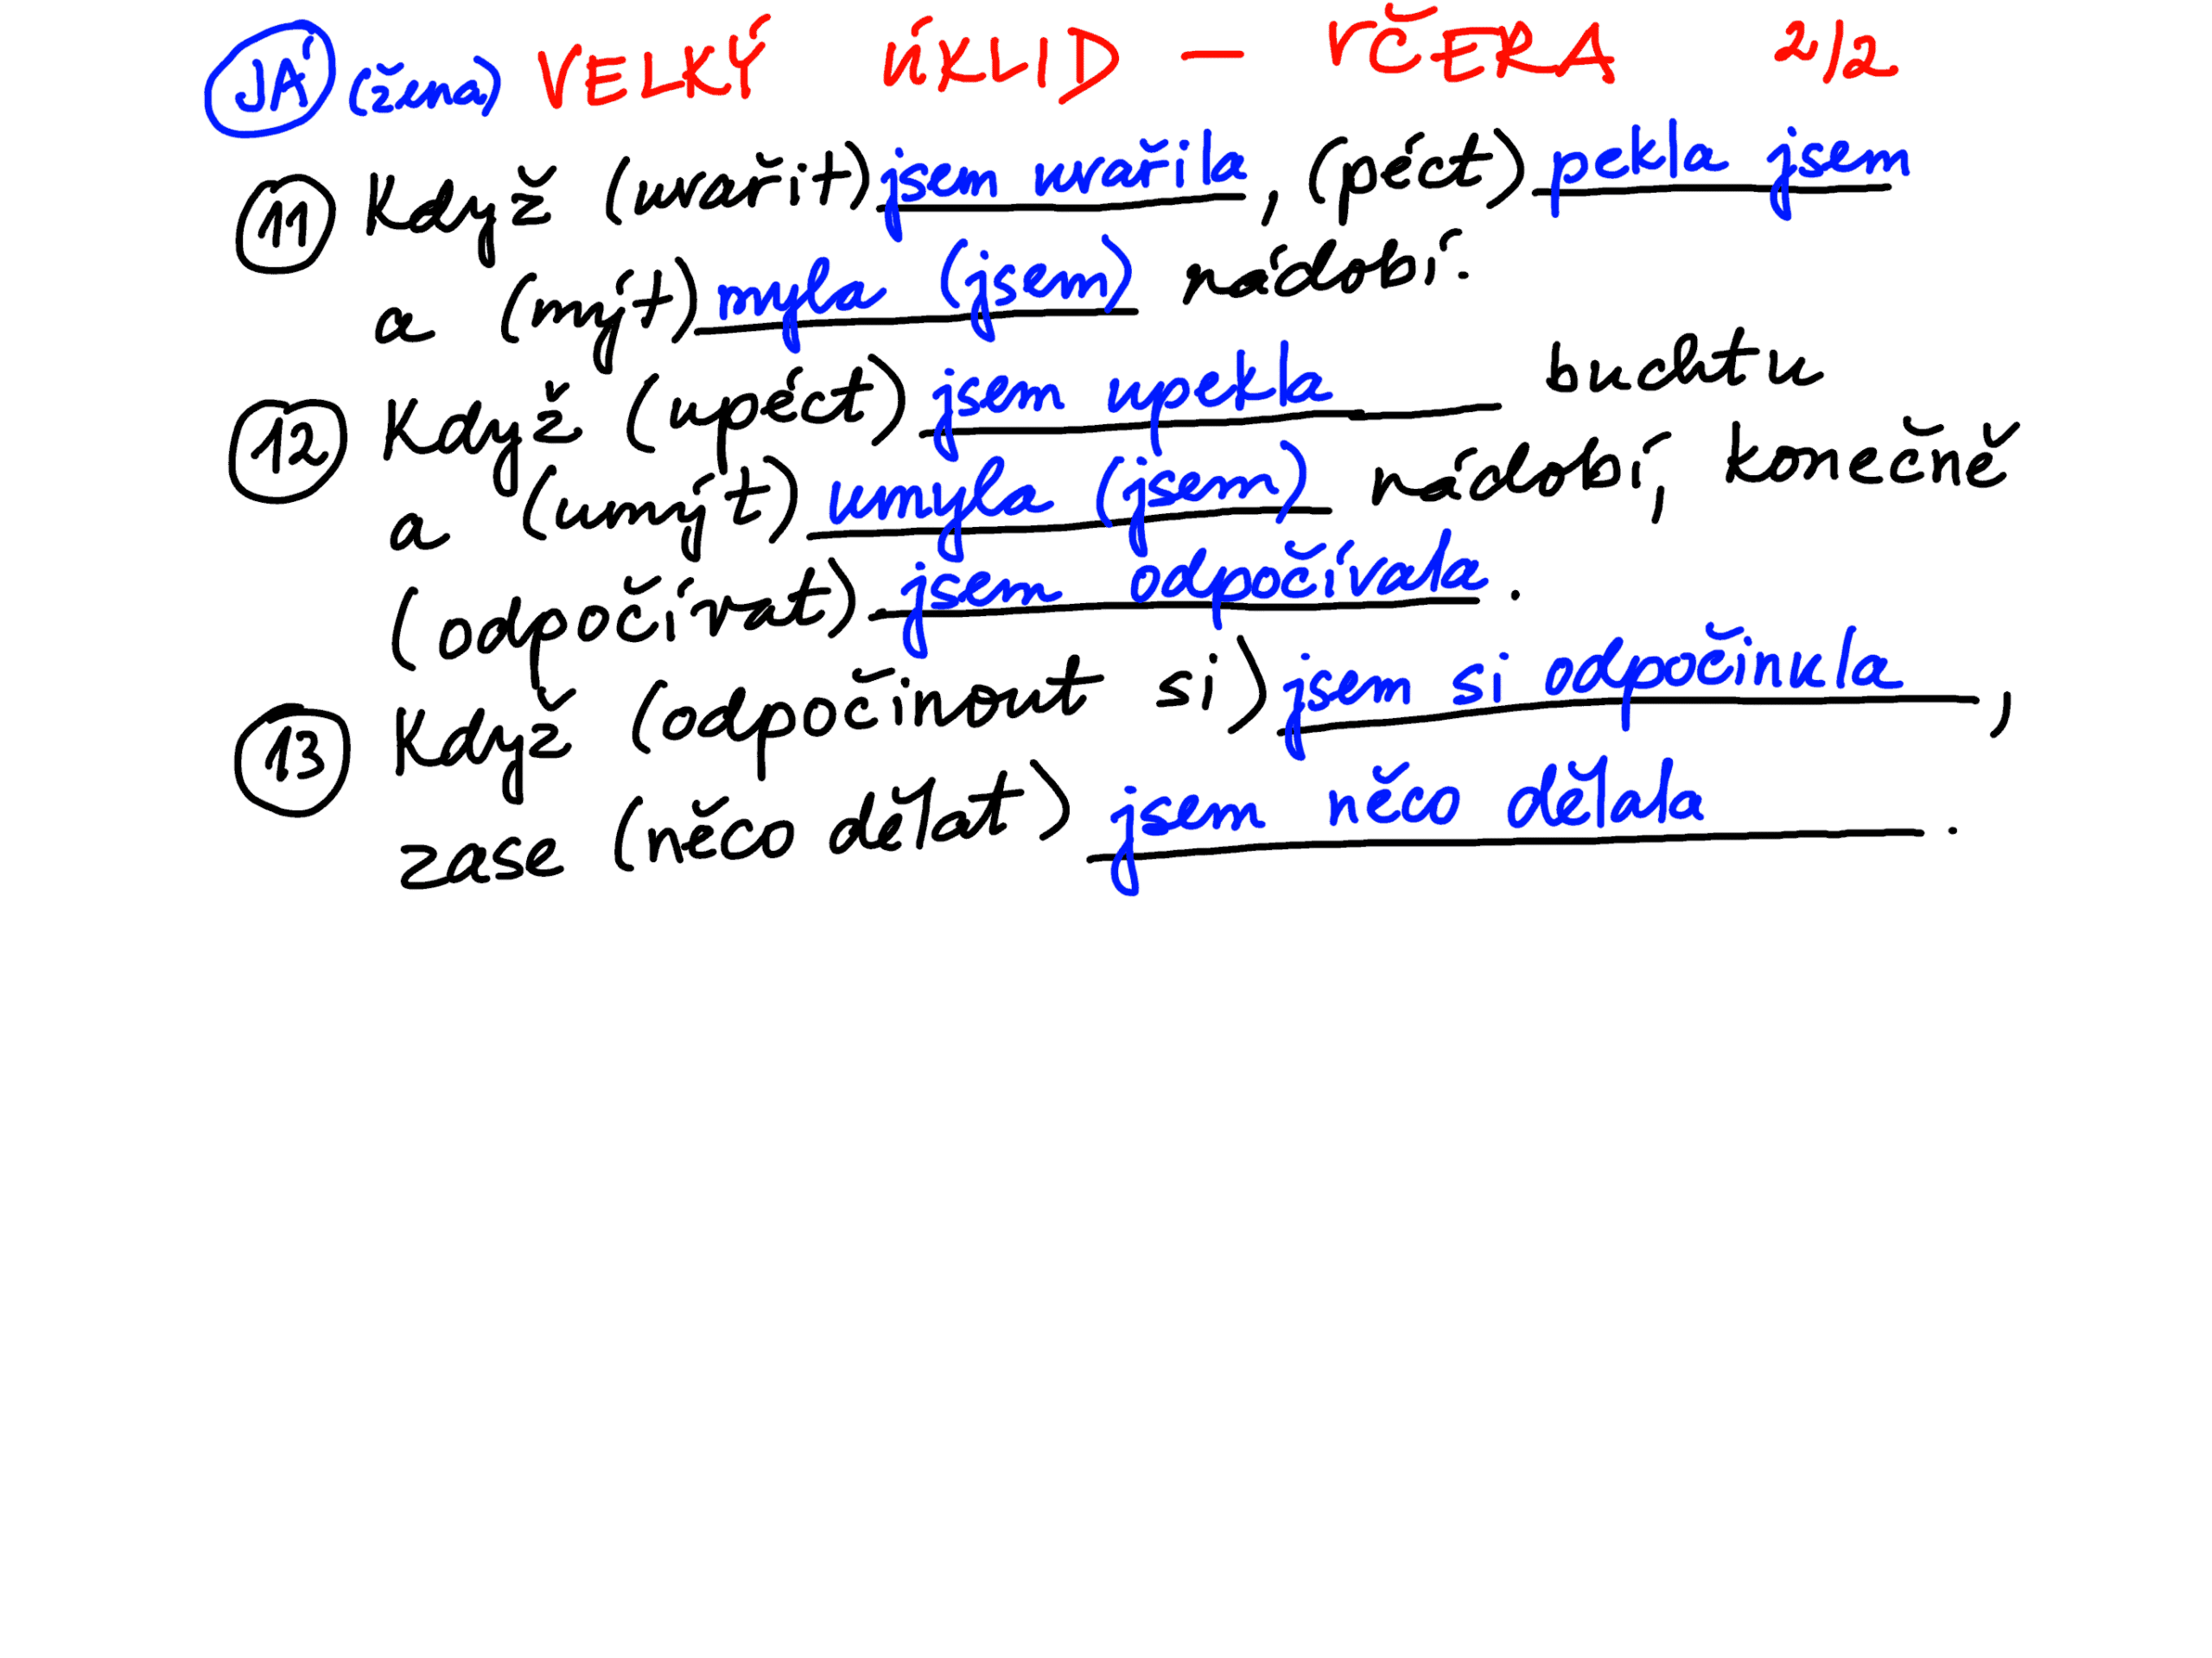 JÁ (žena) VELKÝ ÚKLID — VČERA 2/2
11 Když (uvařit) jsem uvařila, (péct) pekla jsem
a (mýt) myla (jsem) nádobí.
12 Když (upéct) jsem upekla buchtu
a (umýt) umyla (jsem) nádobí, konečně
(odpočívat) jsem odpočívala.
13 Když (odpočinout si) jsem si odpočinula,
zase (něco dělat) jsem něco dělala.